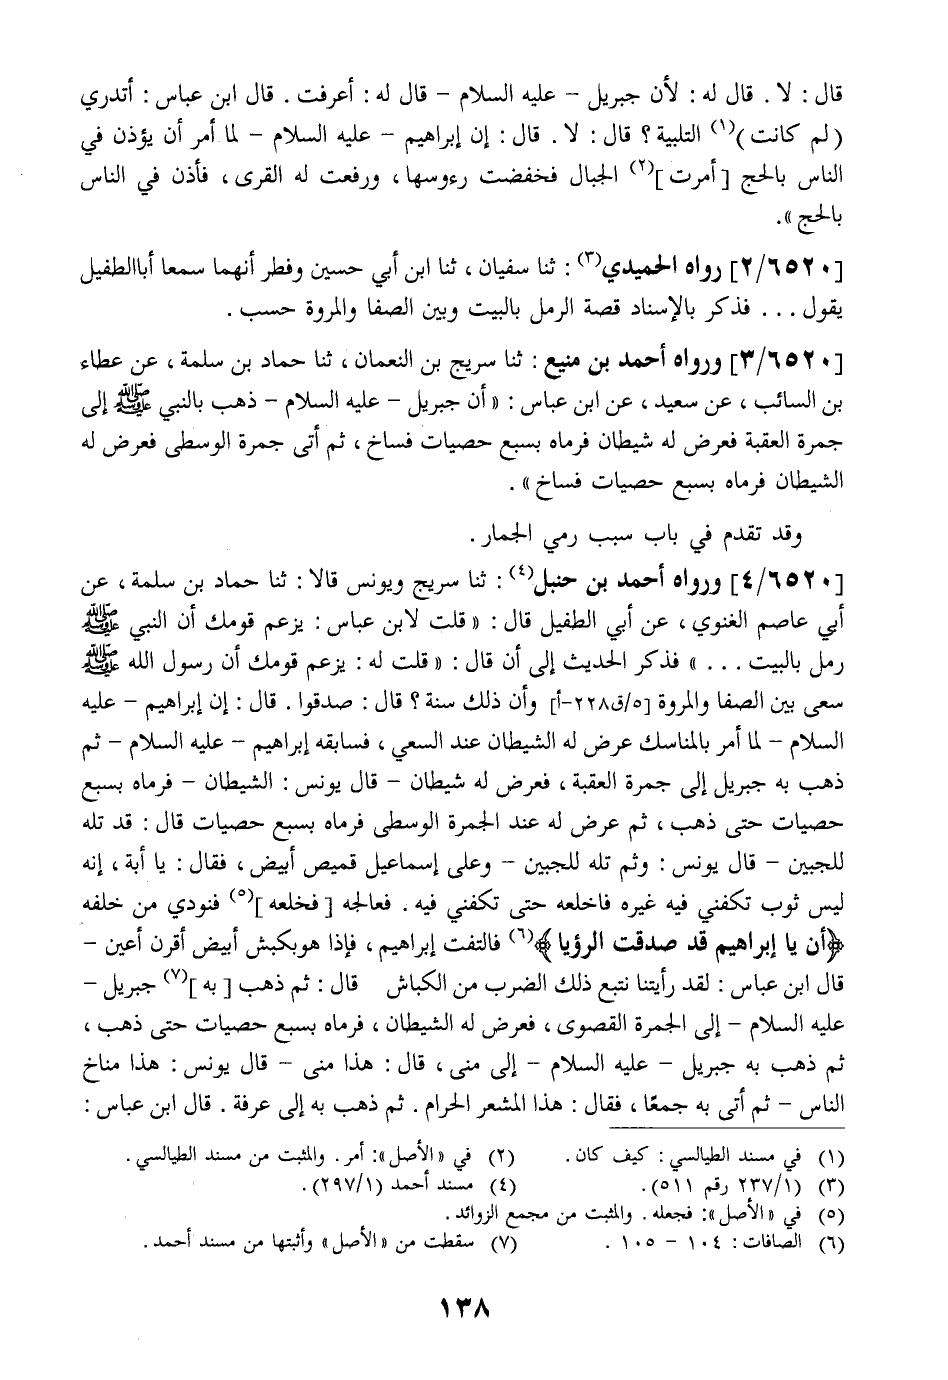 قال : لا . قال له : لأن جبريل – عليه السلام – قال له : أعرفت . قال ابن عباس : أتدري
(لم كانت)(١) التلبية ؟ قال : لا . قال : إن إبراهيم – عليه السلام – لما أمر أن يؤذن في
الناس بالحج [أمرت](٢) الجبال فخفضت رءوسها ، ورفعت له القرى ، فأذن في الناس
بالحج».
[٢/٦٥٢٠] رواه الحميدي(٣) : ثنا سفيان ، ثنا ابن أبي حسين وفطر أنهما سمعا أباالطفيل
يقول ... فذكر بالإسناد قصة الرمل بالبيت وبين الصفا والمروة حسب .
[٣/٦٥٢٠] ورواه أحمد بن منيع : ثنا سريج بن النعمان ، ثنا حماد بن سلمة ، عن عطاء
بن السائب ، عن سعيد ، عن ابن عباس : «أن جبريل – عليه السلام – ذهب بالنبي ﷺ إلى
جمرة العقبة فعرض له شيطان فرماه بسبع حصيات فساخ ، ثم أتى جمرة الوسطى فعرض له
الشيطان فرماه بسبع حصيات فساخ» .
وقد تقدم في باب سبب رمي الجمار .
[٤/٦٥٢٠] ورواه أحمد بن حنبل(٤) : ثنا سريج ويونس قالا : ثنا حماد بن سلمة ، عن
أبي عاصم الغنوي ، عن أبي الطفيل قال : «قلت لابن عباس : يزعم قومك أن النبي ﷺ
رمل بالبيت ... » فذكر الحديث إلى أن قال : «قلت له : يزعم قومك أن رسول الله ﷺ
سعى بين الصفا والمروة [٥/ق٢٢٨-أ] وأن ذلك سنة ؟ قال : صدقوا . قال : إن إبراهيم – عليه
السلام – لما أمر بالمناسك عرض له الشيطان عند السعي ، فسابقه إبراهيم – عليه السلام – ثم
ذهب به جبريل إلى جمرة العقبة ، فعرض له شيطان – قال يونس : الشيطان – فرماه بسبع
حصيات حتى ذهب ، ثم عرض له عند الجمرة الوسطى فرماه بسبع حصيات قال : قد تله
للجبين – قال يونس : وثم تله للجبين – وعلى إسماعيل قميص أبيض ، فقال : يا أبة ، إنه
ليس ثوب تكفني فيه غيره فاخلعه حتى تكفني فيه . فعالجه [فخلعه](٥) فنودي من خلفه
﴿أن يا إبراهيم قد صدقت الرؤيا﴾(٦) فالتفت إبراهيم ، فإذا هوبكبش أبيض أقرن أعين –
قال ابن عباس : لقد رأيتنا نتبع ذلك الضرب من الكباش قال : ثم ذهب [به](٧) جبريل –
عليه السلام – إلى الجمرة القصوى ، فعرض له الشيطان ، فرماه بسبع حصيات حتى ذهب ،
ثم ذهب به جبريل – عليه السلام – إلى منى ، قال : هذا منى – قال يونس : هذا مناخ
الناس – ثم أتى به جمعًا ، فقال : هذا المشعر الحرام . ثم ذهب به إلى عرفة . قال ابن عباس :
(١) في مسند الطيالسي : كيف كان . (٢) في «الأصل»: أمر . والمثبت من مسند الطيالسي .
(٣) (٢٣٧/١ رقم ٥١١). (٤) مسند أحمد (٢٩٧/١).
(٥) في «الأصل»: فجعله . والمثبت من مجمع الزوائد .
(٦) الصافات : ١٠٤ – ١٠٥ . (٧) سقطت من «الأصل» وأثبتها من مسند أحمد .
١٣٨